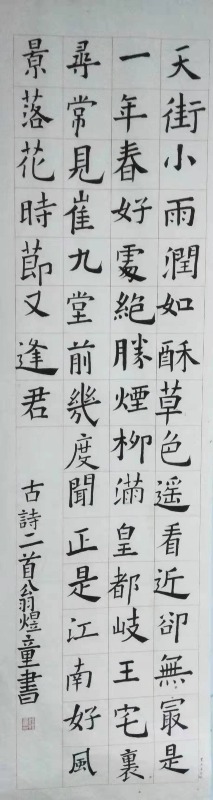 天街小雨潤如酥草色遥看近卻無㝡是
一年春好處絕勝煙柳滿皇都岐王宅裏
尋常見崔九堂前幾度聞正是江南好風
景落花時節又逢君
古詩二首翁煜童書